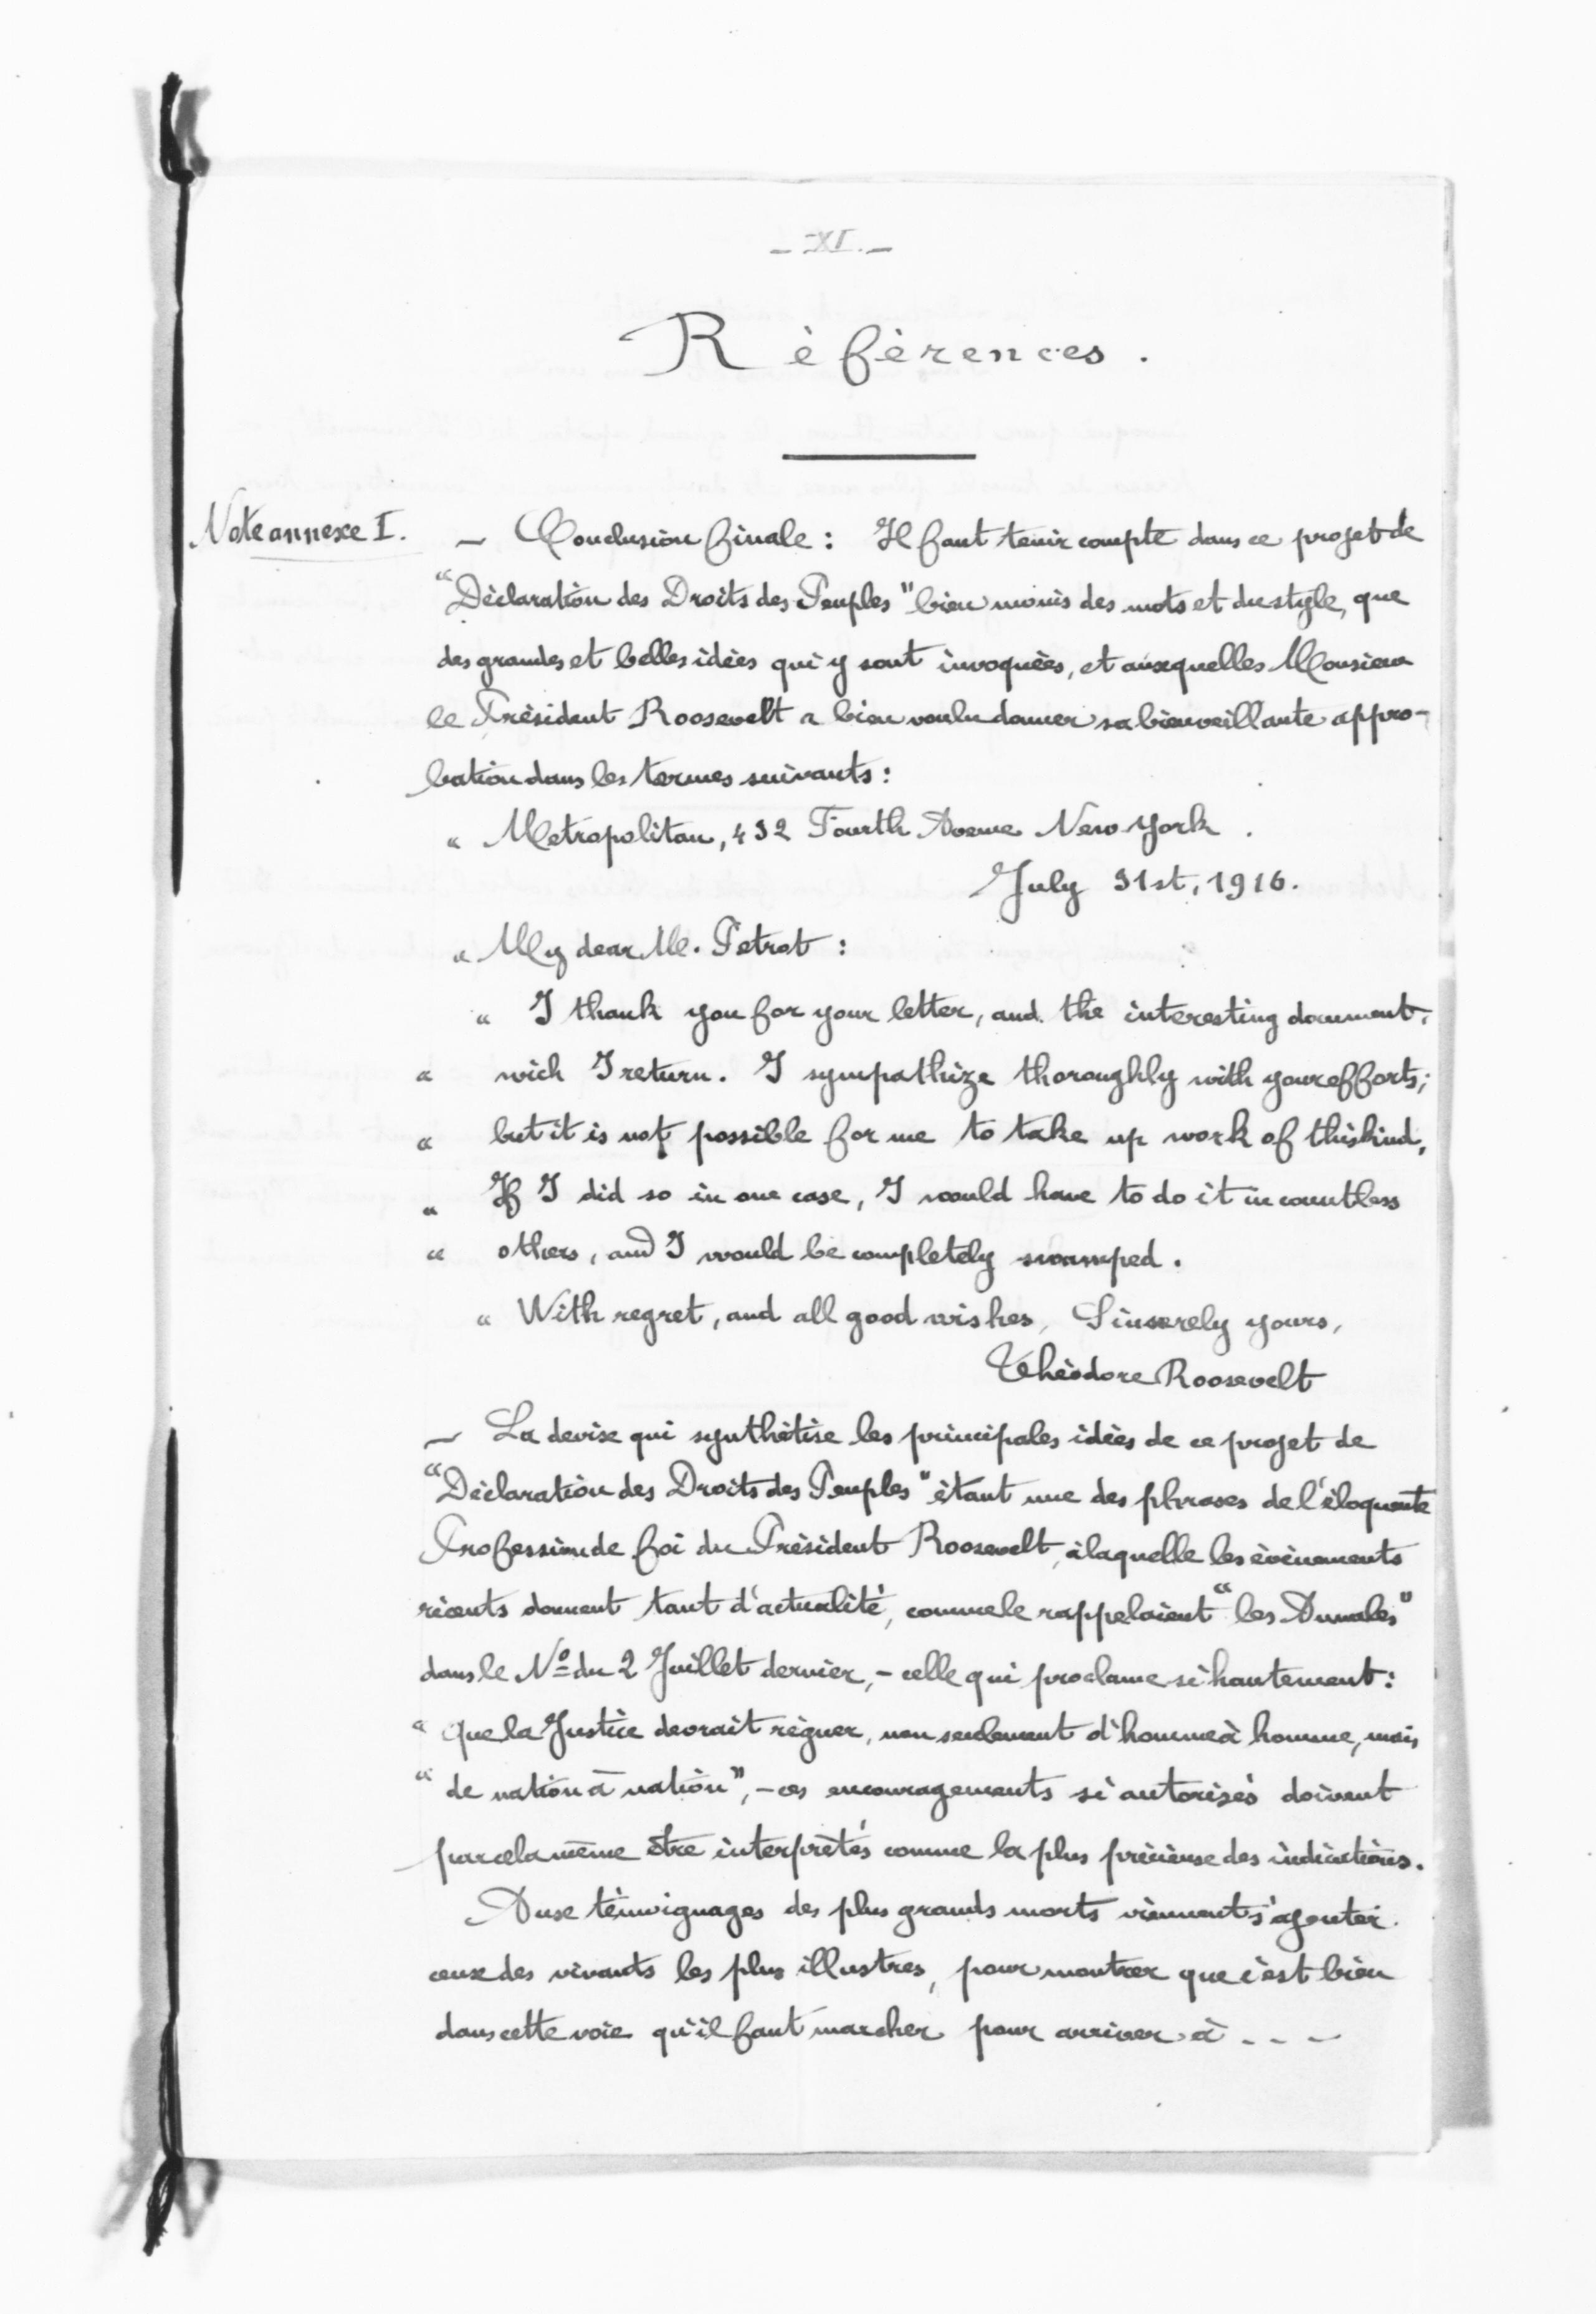 - XI. -
Références.
Note annexe I.
— Conclusion finale : Il faut tenir compte dans ce projet de
"Déclaration des Droits des Peuples" bien moins des mots et du style, que
des grandes et belles idées qui y sont invoquées, et auxquelles Monsieur
le Président Roosevelt a bien voulu donner sa bienveillante appro-
bation dans les termes suivants :
" Metropolitan, 432 Fourth Avenue New York.
July 31st, 1916.
" My dear M. Petrot :
" I thank you for your letter, and the interesting document,
" wich I return. I sympathize thoroughly with your efforts;
" but it is not possible for me to take up work of this kind,
" If I did so in one case, I would have to do it in countless
" others, and I would be completely swamped.
" With regret, and all good wishes, Sincerely yours,
Théodore Roosevelt
— La devise qui synthétise les principales idées de ce projet de
"Déclaration des Droits des Peuples" étant une des phrases de l'éloquente
Profession de foi du Président Roosevelt, à laquelle les évènements
récents donnent tant d'actualité, comme le rappelaient "les Annales"
dans le Nº du 2 Juillet dernier, - celle qui proclame si hautement :
" que la Justice devrait régner, non seulement d'homme à homme, mais
" de nation à nation", - ces encouragements si autorisés doivent
par cela même être interprétés comme la plus précieuse des indications.
Aux témoignages des plus grands morts viennent s'ajouter
ceux des vivants les plus illustres, pour montrer que c'est bien
dans cette voie qu'il faut marcher pour arriver à - - -